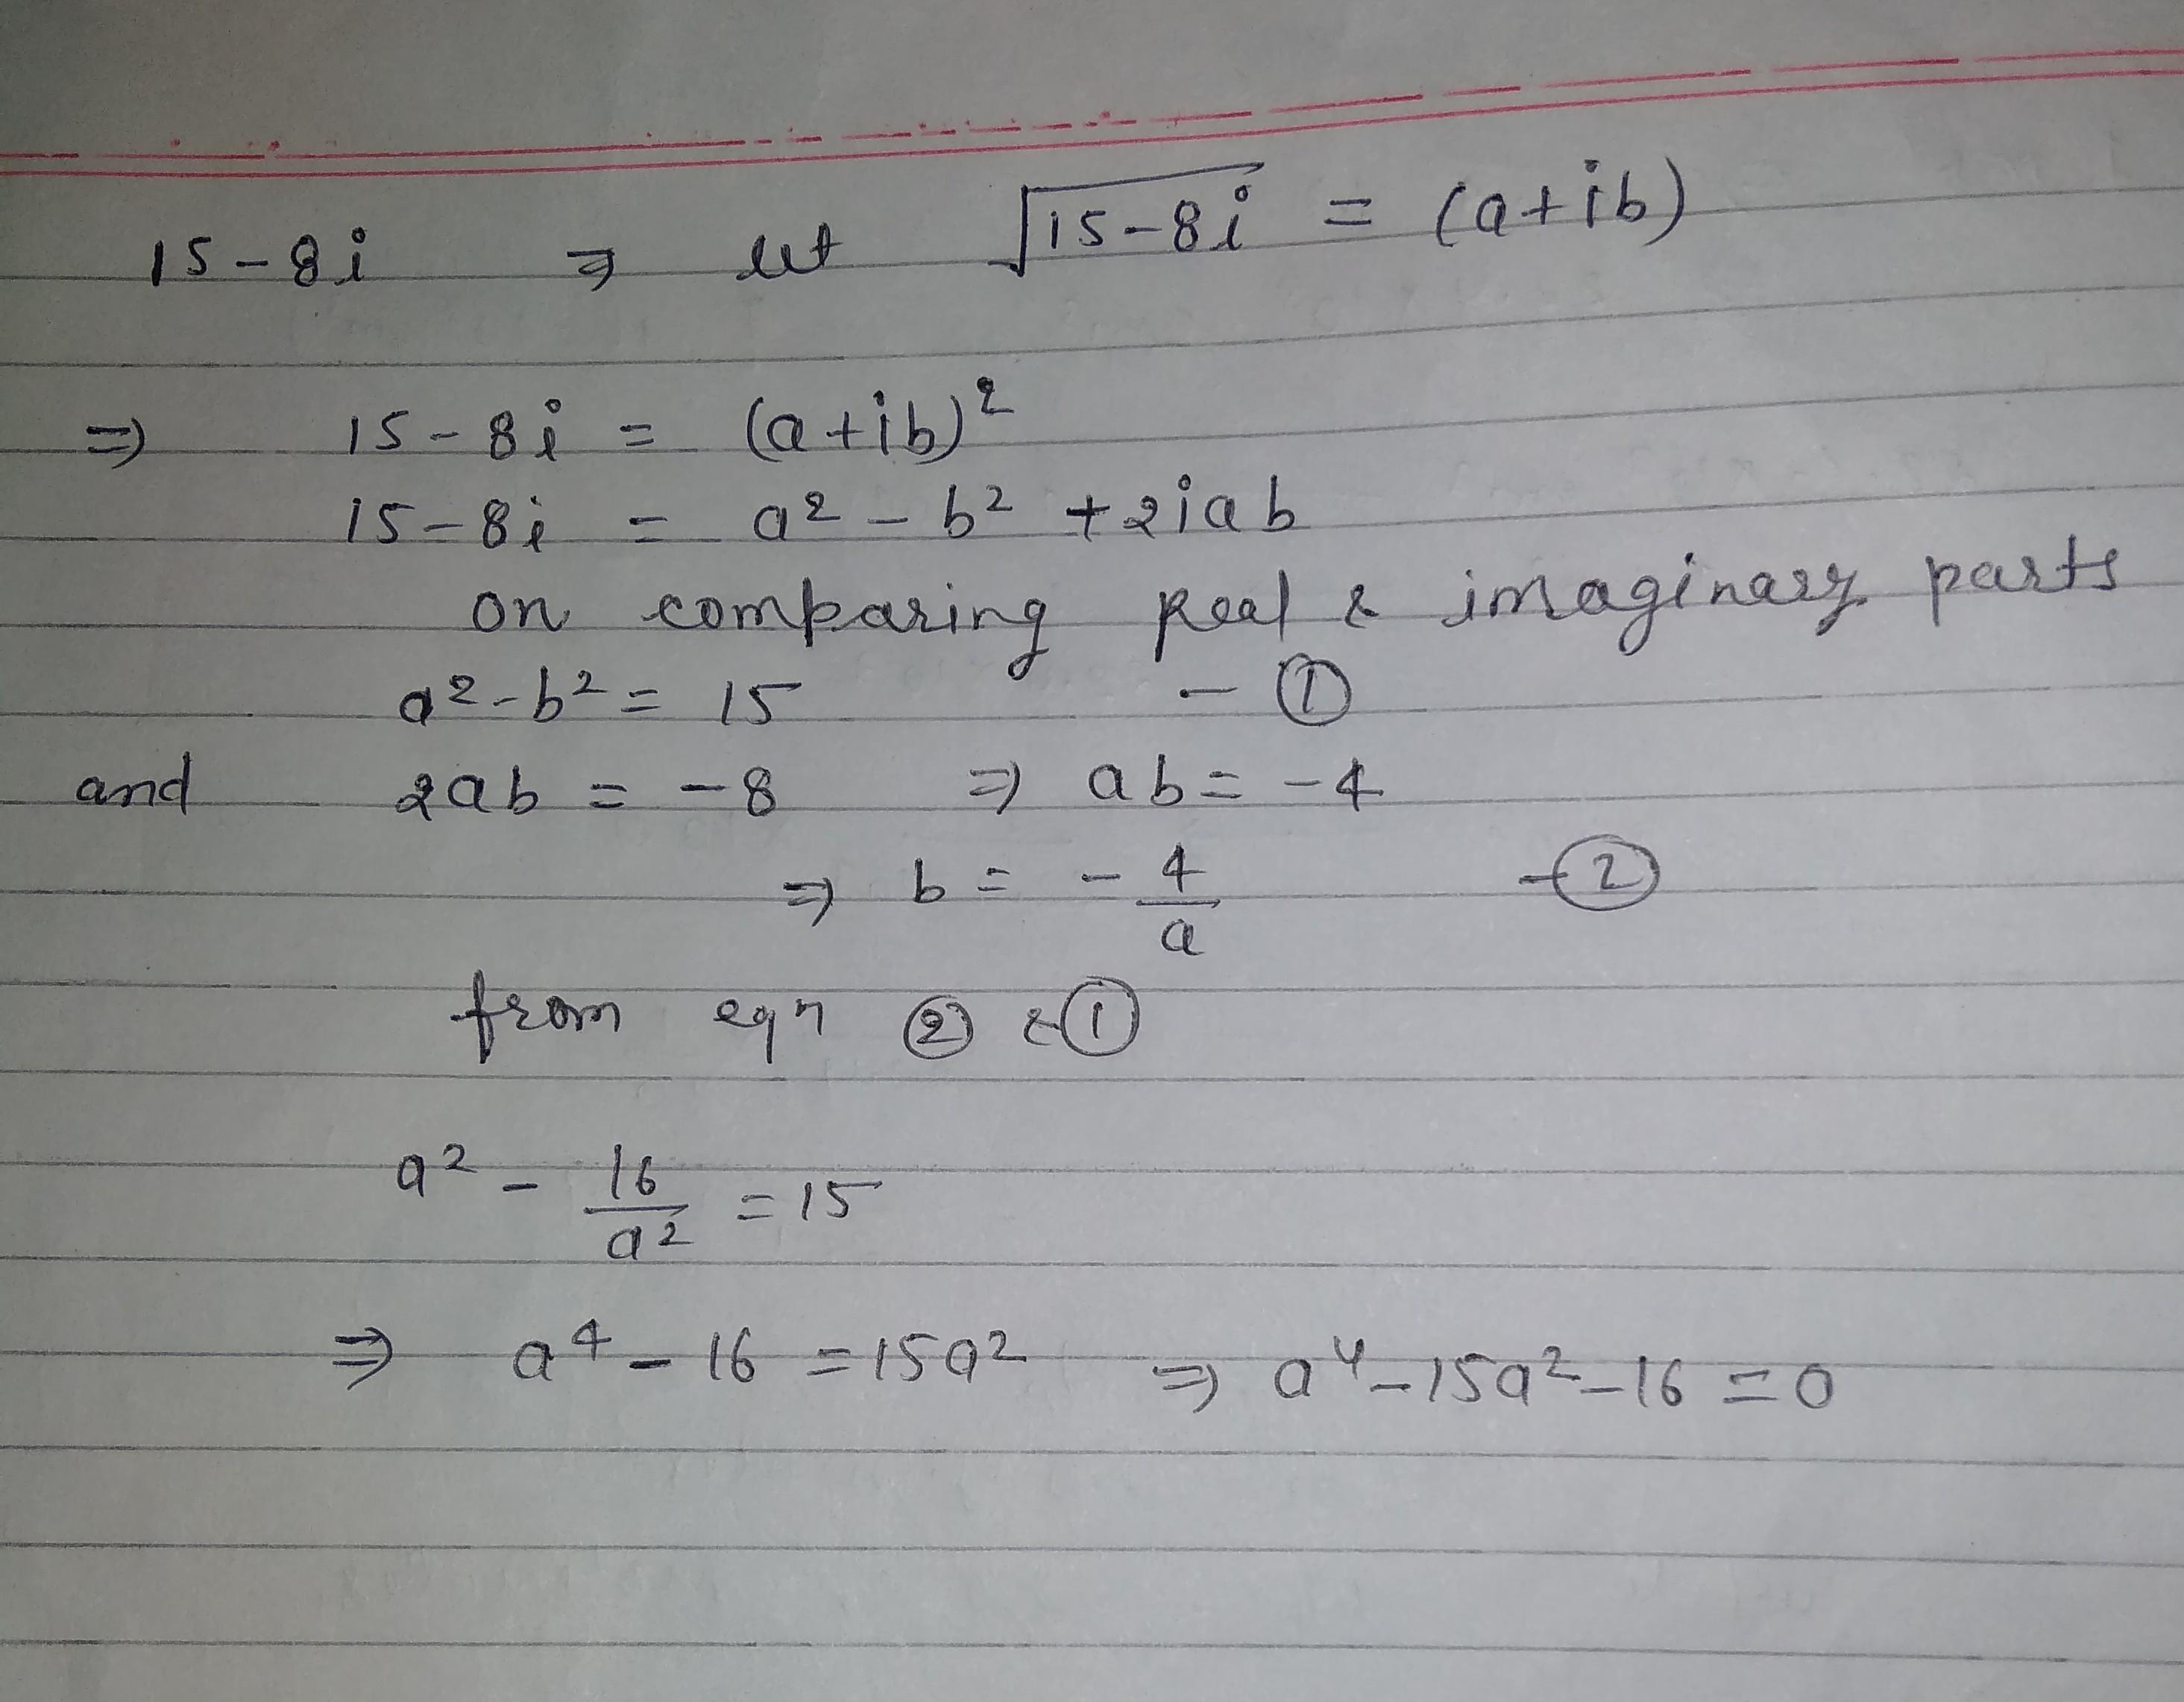 15-8i ⇒ let √15-8i = (a+ib)
⇒ 15-8i = (a+ib)²
15-8i = a² - b² + 2iab
on comparing Real & imaginary parts
a²-b² = 15 - ①
and 2ab = -8 ⇒ ab = -4
⇒ b = - 4/a - ②
from eqn ② & ①
a² - 16/a² = 15
⇒ a⁴ - 16 = 15a² ⇒ a⁴-15a²-16 = 0